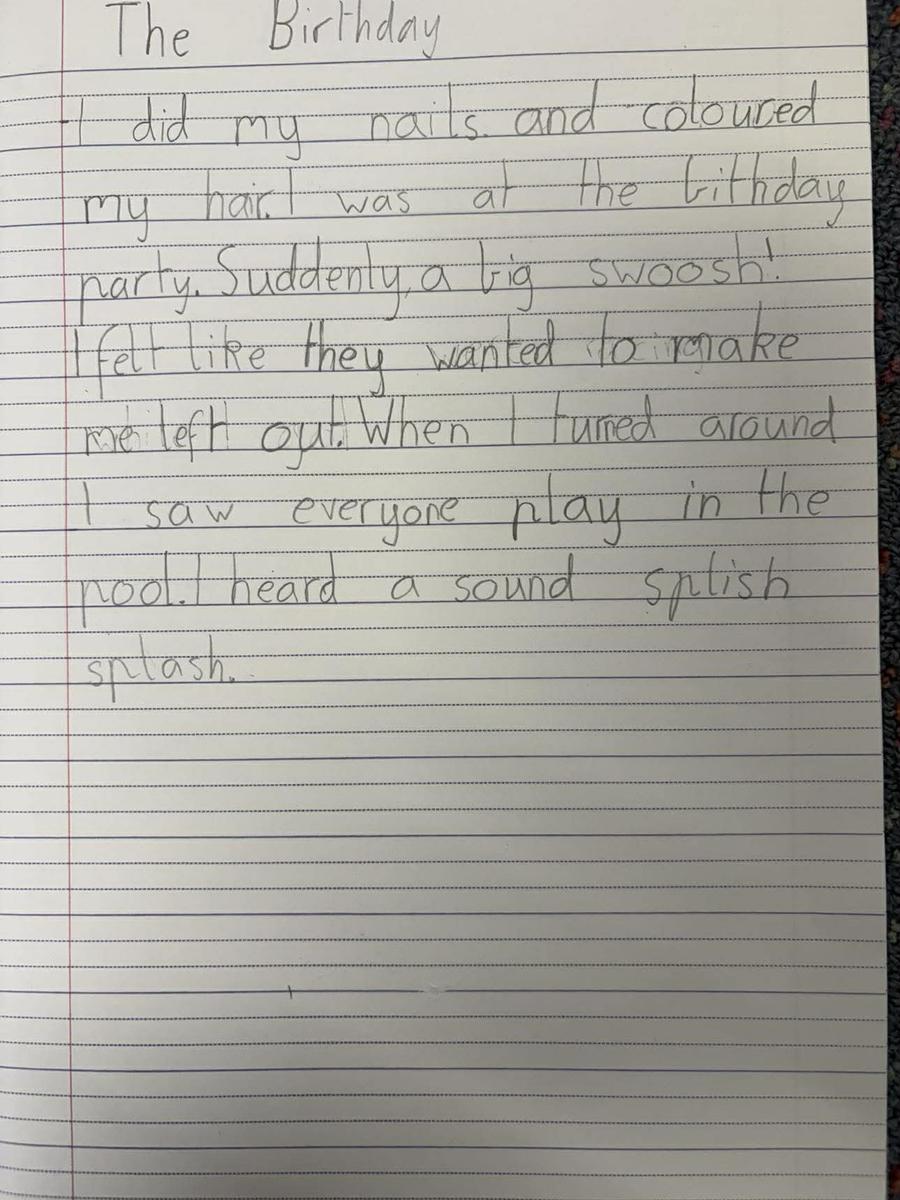 The Birthday
I did my nails. and coloured
my hair. I was at the bithday
party. Suddenly, a big swoosh!
I felt like they wanted to make
me left out. When I turned around
I saw everyone play in the
pool. I heard a sound splish
splash.